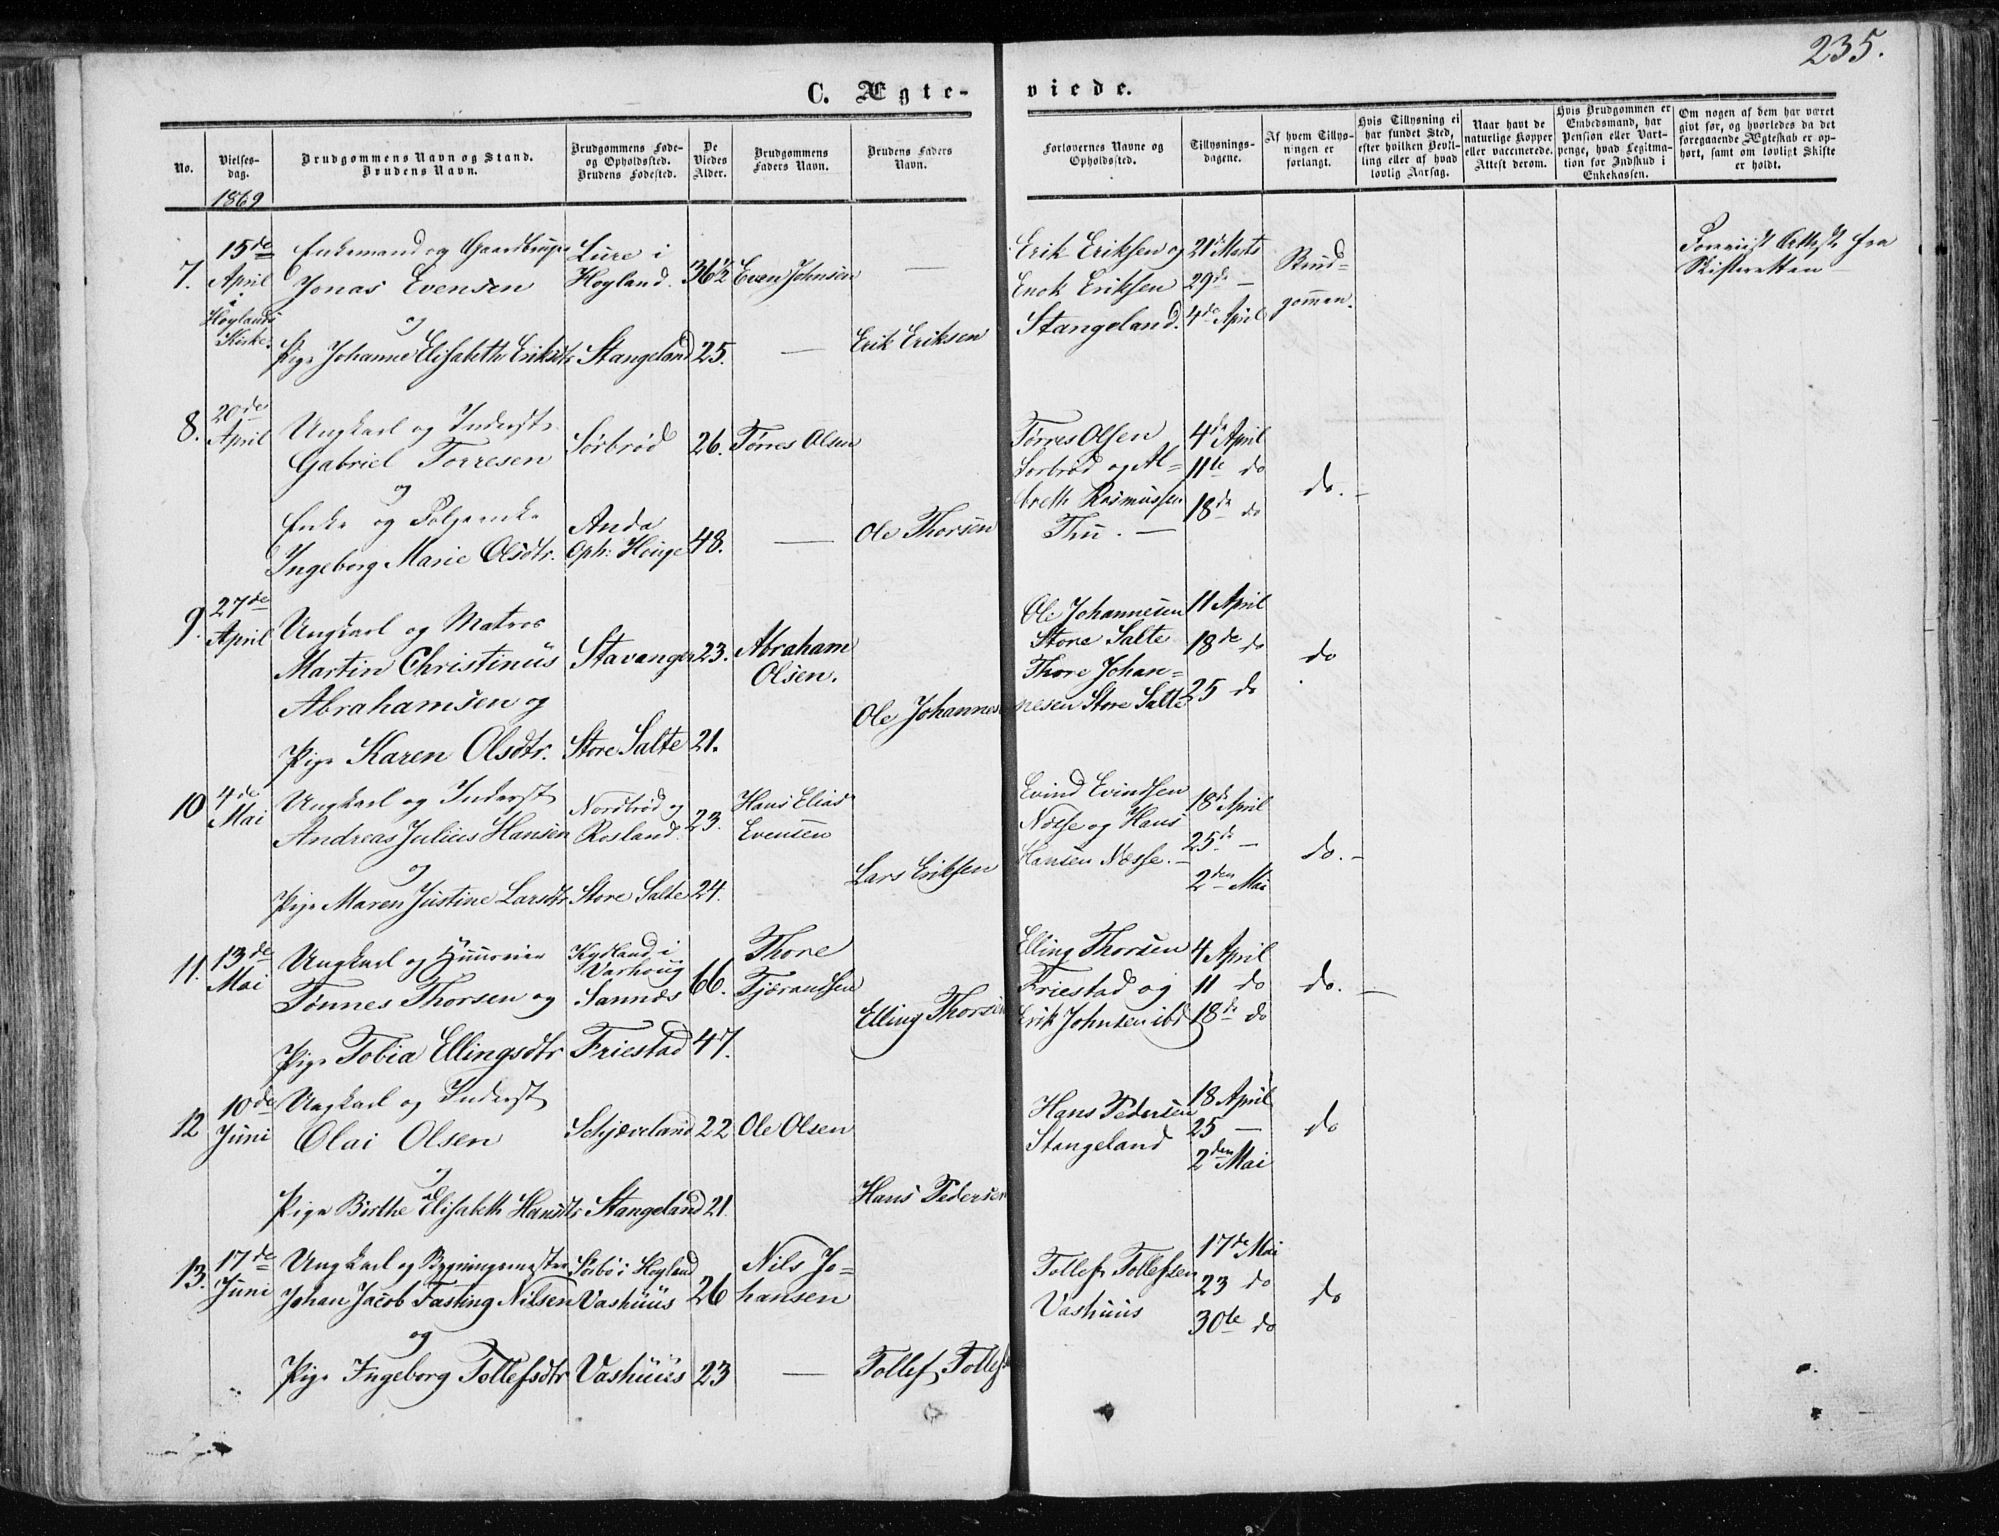 235.
C. Ægte- viede.
No.
Vielses-dag.
Brudgommens Navn og Stand.
Brudens Navn.
Brudgommens Føde-
og Opholdssted.
Brudens Fødested.
De
Viedes
Alder.
Brudgommens
Faders Navn.
Brudens Faders
Navn.
Forlovernes Navne og
Opholdssted.
Tillysnings-
dagene.
Af hvem Tillys-
ningen er
forlangt.
Hvis Tillysning ei
har fundet Sted,
efter hvilken Bevil-
ling eller af hvad
lovlig Aarsag.
Naar havt de
naturlige Kopper
eller vaccinerede.
Attest derom.
Hvis Brudgommen er
Embedsmand, har
Pension eller Vart-
penge, hvad Legitma-
tion for Indskud i
Enkekassen.
Om nogen af dem har været
givt før, og hvorledes da det
foregaaende Ægteskab er op-
hørt, samt om lovligt Skifte
er holdt.
1869
7.
15de
April
i
Høylands
Kirke.
Enkemand og Gaardbruger
Jonas Evensen
og
Pige Johanne Elisabeth Eriksdtr
Lure i
Høyland.
Stangeland
36½
25.
Even Johnsen
—
—
Erik Eriksen
Erik Eriksen og
Enok Eriksen
Stangeland.
21de Marts
29de —
4de April
Brud-
gommen.
Foreviist Attest fra
Skifteretten
8.
20de
April
Ungkarl og Inderst
Gabriel Torresen
og
Enke og Føl
Ingeborg Marie Olsdtr.
Sørbrød
Anda
Oph: Houge
26.
48.
Tørres Olsen
—
Ole Thorsen
Tørres Olsen
Sørbrød og Al-
breth Rasmussen
Thu. —
4de April
11te do
18de do
do. —
9.
27de
April
Ungkarl og Matros
Martin Christinus
Abrahamsen og
Pige Karen Olsdtr.
Stavanger
Store Salte
23.
21.
Abraham
Olsen.
Ole Johannesen
Ole Johannesen
Store Salte
Thore Johan-
nesen Store Salte
11 April
18de do
25 do
do
10
4de
Mai
Ungkarl og Inderst
Andreas Julius Hansen
og
Pige Maren Justine Larsdtr
Nordbrød og
Rosland.
Store Salte
23.
24.
Hans Elias
Evensen
Lars Eriksen
Evind Evindsen
Næsse og Hans
Hansen Næsse. —
18de April
25de —
2den Mai
do. —
11.
13de
Mai
Ungkarl og
Tønnes Thorsen og
Pige Tobia Ellingsdtr
Kydland i
Varhoug
Sannæs
Friestad
66.
47.
Thore
Tjærandsen
Elling Thorsen
Elling Thorsen
Friestad og
Erik Johnsen ibd
4 April
11 do
18de do
do. —
12
10de
Juni
Ungkarl og Inderst
Olai Olsen
og
Pige Birthe Elisabeth Hansdtr
Skjæveland
Stangeland
22
21.
Ole Olsen
Hans Pedersen
Hans Pedersen
Stangeland
18 April
25 —
2den Mai
do
13.
17de
Juni
Ungkarl og Bygningsmester
Johan Jacob Fasting Nilsen
og
Pige Ingeborg Tollefsdtr
Sørbø i Høyland
Vashuus
Vashuus
26
23
Nils Jo-
hansen
—
Tollef Tollefs
Tollef Tollefsen
Vashuus
17de Mai
23 do
30te do
do